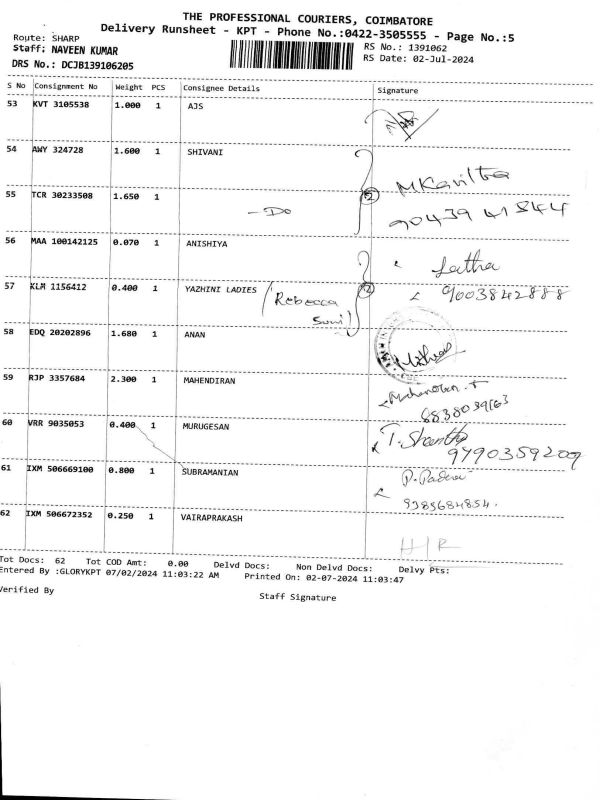 THE PROFESSIONAL COURIERS, COIMBATORE
Delivery Runsheet - KPT - Phone No.:0422-3505555 - Page No.:5
Route: SHARP
Staff: NAVEEN KUMAR
DRS No.: DCJB139106205
RS No.: 1391062
RS Date: 02-Jul-2024
S No Consignment No Weight PCS Consignee Details Signature
53 KVT 3105538 1.000 1 AJS
54 AWY 324728 1.600 1 SHIVANI
MKavitha
55 TCR 30233508 1.650 1 - Do 2
90439 41844
56 MAA 100142125 0.070 1 ANISHIYA
Latha
57 KLM 1156412 0.400 1 YAZHINI LADIES (Rebecca 2
9003842888
58 EDQ 20202896 1.680 1 ANAN
59 RJP 3357684 2.300 1 MAHENDIRAN
60 VRR 9035053 0.400 1 MURUGESAN
T. Shantha
9790359209
61 IXM 506669100 0.800 1 SUBRAMANIAN
9385684854.
62 IXM 506672352 0.250 1 VAIRAPRAKASH
H/R
Tot Docs: 62 Tot COD Amt: 0.00 Delvd Docs: Non Delvd Docs: Delvy Pts:
Entered By :GLORYKPT 07/02/2024 11:03:22 AM Printed On: 02-07-2024 11:03:47
Verified By
Staff Signature